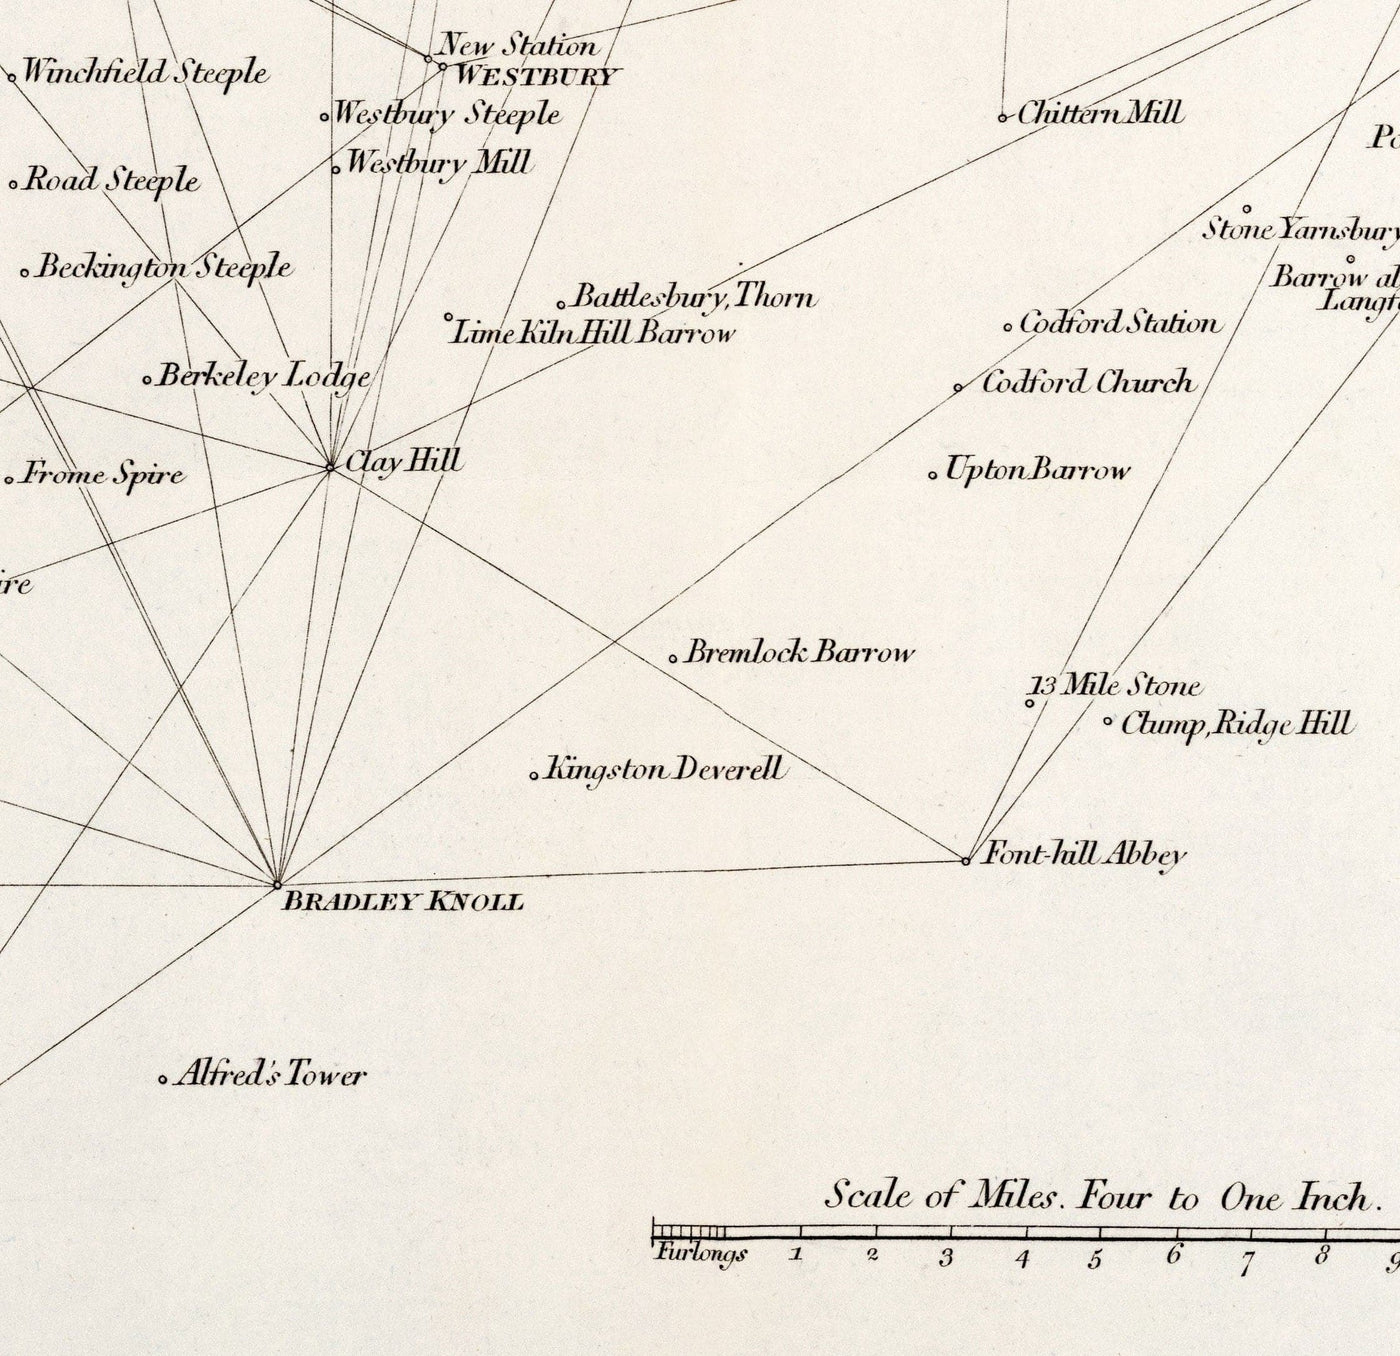 New Station
WESTBURY
Winchfield Steeple
Westbury Steeple
Chittern Mill
Westbury Mill
Road Steeple
Stone Yarnsbury
Beckington Steeple
Barrow
Battlesbury, Thorn
Codford Station
Lime Kiln Hill Barrow
Berkeley Lodge
Codford Church
Clay Hill
Frome Spire
Upton Barrow
Bremlock Barrow
13 Mile Stone
Clump, Ridge Hill
Kingston Deverell
Font-hill Abbey
BRADLEY KNOLL
Alfred's Tower
Scale of Miles. Four to One Inch.
Furlongs 1 2 3 4 5 6 7 8 9